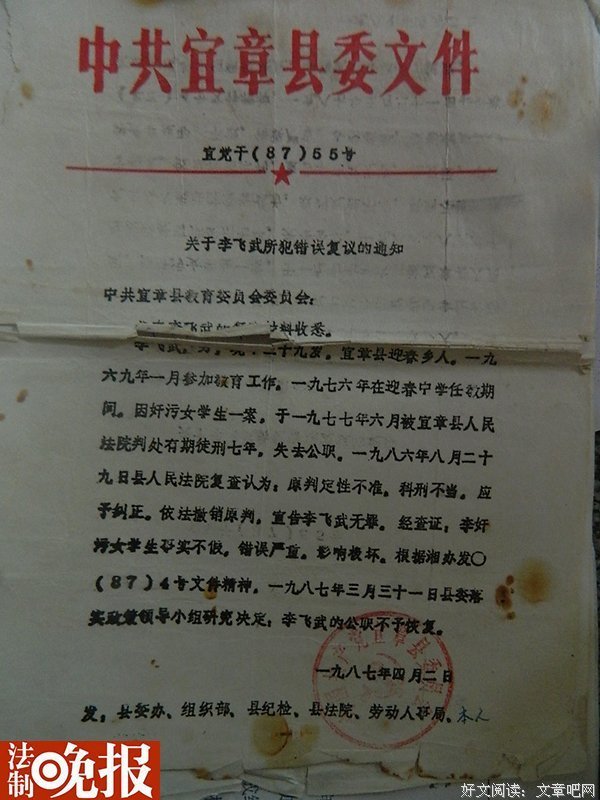 中共宜章县委文件
宜党干(87)55号
关于李飞武所犯错误复议的通知
中共宜章县教育委员会委员会:
李飞武的 材料收悉。
李飞武,男,现 二十九岁。宜章县迎春乡人。一九
六九年一月参加教育工作。一九七六年在迎春中学任教期
间。因奸污女学生一案。于一九七七年六月被宜章县人民
法院判处有期徒刑七年。失去公职。一九八六年八月二十
九日县人民法院复查认为:原判定性不准。科刑不当。应
予纠正。依法撤销原判。宣告李飞武无罪。经查证:李奸
污女学生事实不假。错误严重。影响极坏。根据湘办发〇
(87)4号文件精神。一九八七年三月三十一日县委落
实政策领导小组研究决定:李飞武的公职不予恢复。
一九八七年四月二日
发:县委办、组织部、县纪检、县法院、劳动人事局、本人
法制晚报
好文阅读:文章吧网